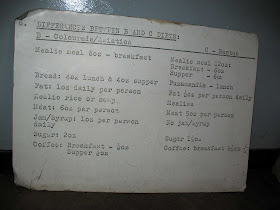 DIFFERANCES BETWEEN B AND C DIETS:
B - Coloureds/Asiatics C - Bantus
Mealie meal 6oz - breakfast Mealie meal 12oz:
Breakfast - 6oz
Supper - 6oz
Bread: 4oz lunch & 4oz supper Puzamandla - lunch
Fat: 1oz daily per person Fat: ½oz per person daily
Mealie rice or samp. Mealies
Meat: 6oz per person Meat: 5oz per person
Jam/Syrup: 1oz per person No jam/syrup
daily
Sugar: 2oz Sugar 1½oz
Coffee: Breakfast - Coffee: breakfast
Supper